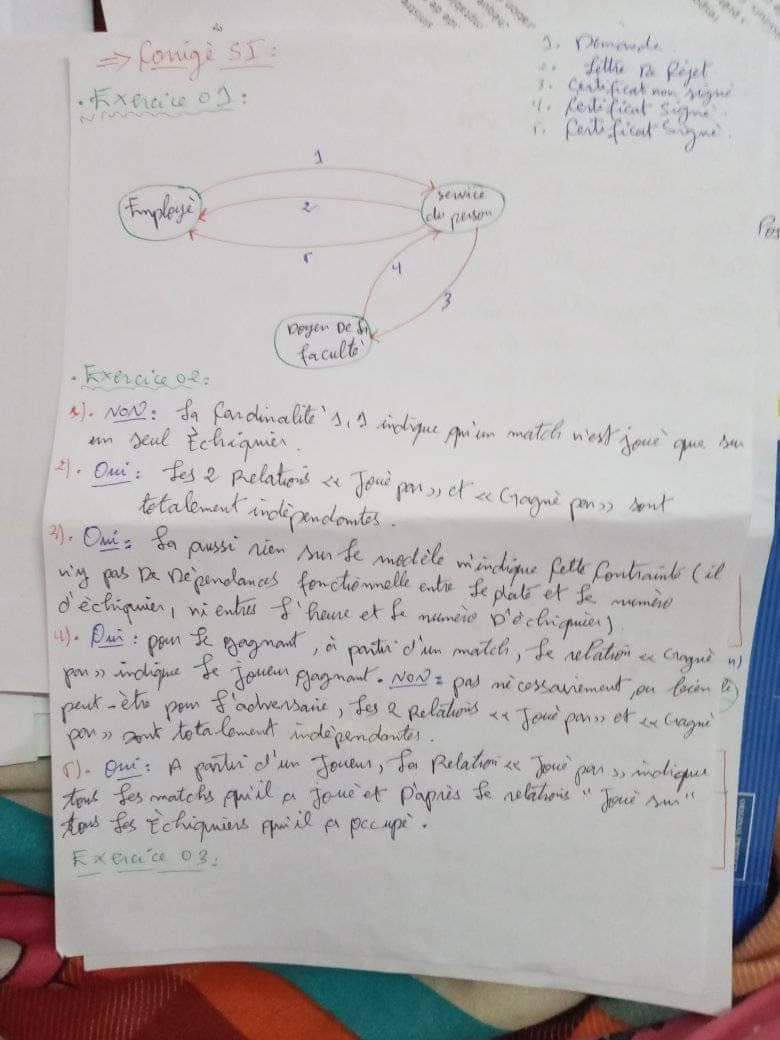 1. Demande
2. Lettre De Rejet
3. Certificat non signé
4. Certificat Signé.
5. Certificat Signé.
=> Corrigé SI:
• Exercice 01:
1
Employé
2
service du person
5
4
3
Doyen De la faculté
• Exercice 02:
1). NON: La Cardinalité 1,1 indique qu'un match n'est joué que sur
un seul Échiquier.
2). Oui: Les 2 Relations << Joué par >> et << Gagné par >> sont
totalement indépendantes.
3). Oui: La aussi rien sur le modèle n'indique cette Contrainte (il
n'y pas De Dépendances fonctionnelle entre le date et le numéro
d'échiquier, ni entres l'heure et le numéro D'échiquier)
4). Oui: pour le gagnant, à partir d'un match, le relation << Gagné
par >> indique le joueur gagnant. NON: pas nécessairement, ou bien
peut-être pour l'adversaire, Les 2 Relations << Joué par >> et << Gagné
par >> sont totalement indépendantes.
5). Oui: A partir d'un Joueur, La Relation << Joué par >> indique
tous les matchs qu'il a joué et D'après le relations "Joué sur"
tous les Échiquiers qu'il a occupé.
Exercice 03: